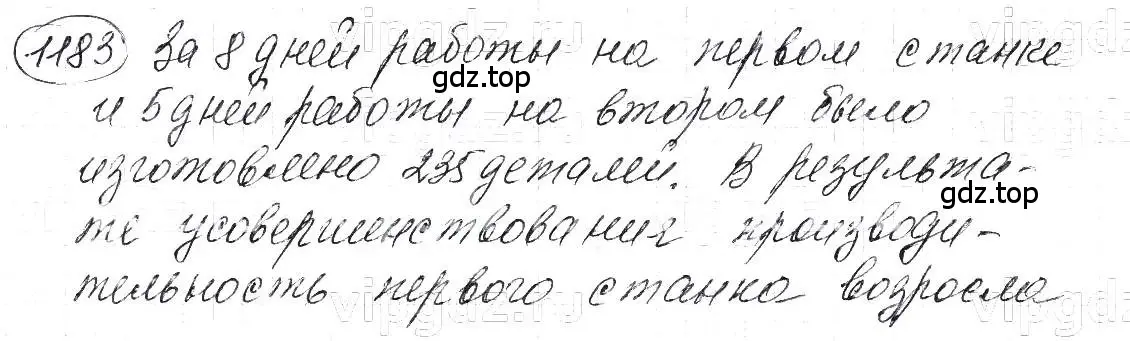 1183 За 8 дней работы на первом станке
gdz.top
и 5 дней работы на втором было
изготовлено 235 деталей. В результа-
gdz.top
те усовершенствования производи-
тельность первого станка возросла
gdz.top